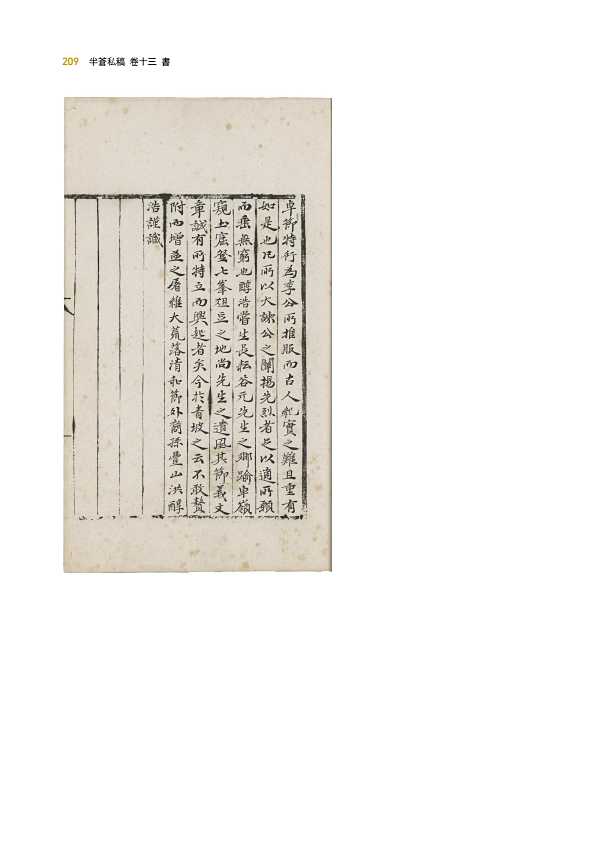 209 半蒼私稿 卷十三 書
卓節特行為李公所推服而古人紀實之難且重有
如是也凡所以大諫公之闡揚先烈者足以適所願
而垂無窮也醇浩嘗生長耘谷元先生之鄉踰車嶺
窺土窟登七峯俎豆之地尚先生之遺風其節義文
章誠有所特立而興起者矣今於青坡之云不敢贅
附而增並之屠維大荒落清和節外裔孫豊山洪醇
浩謹識